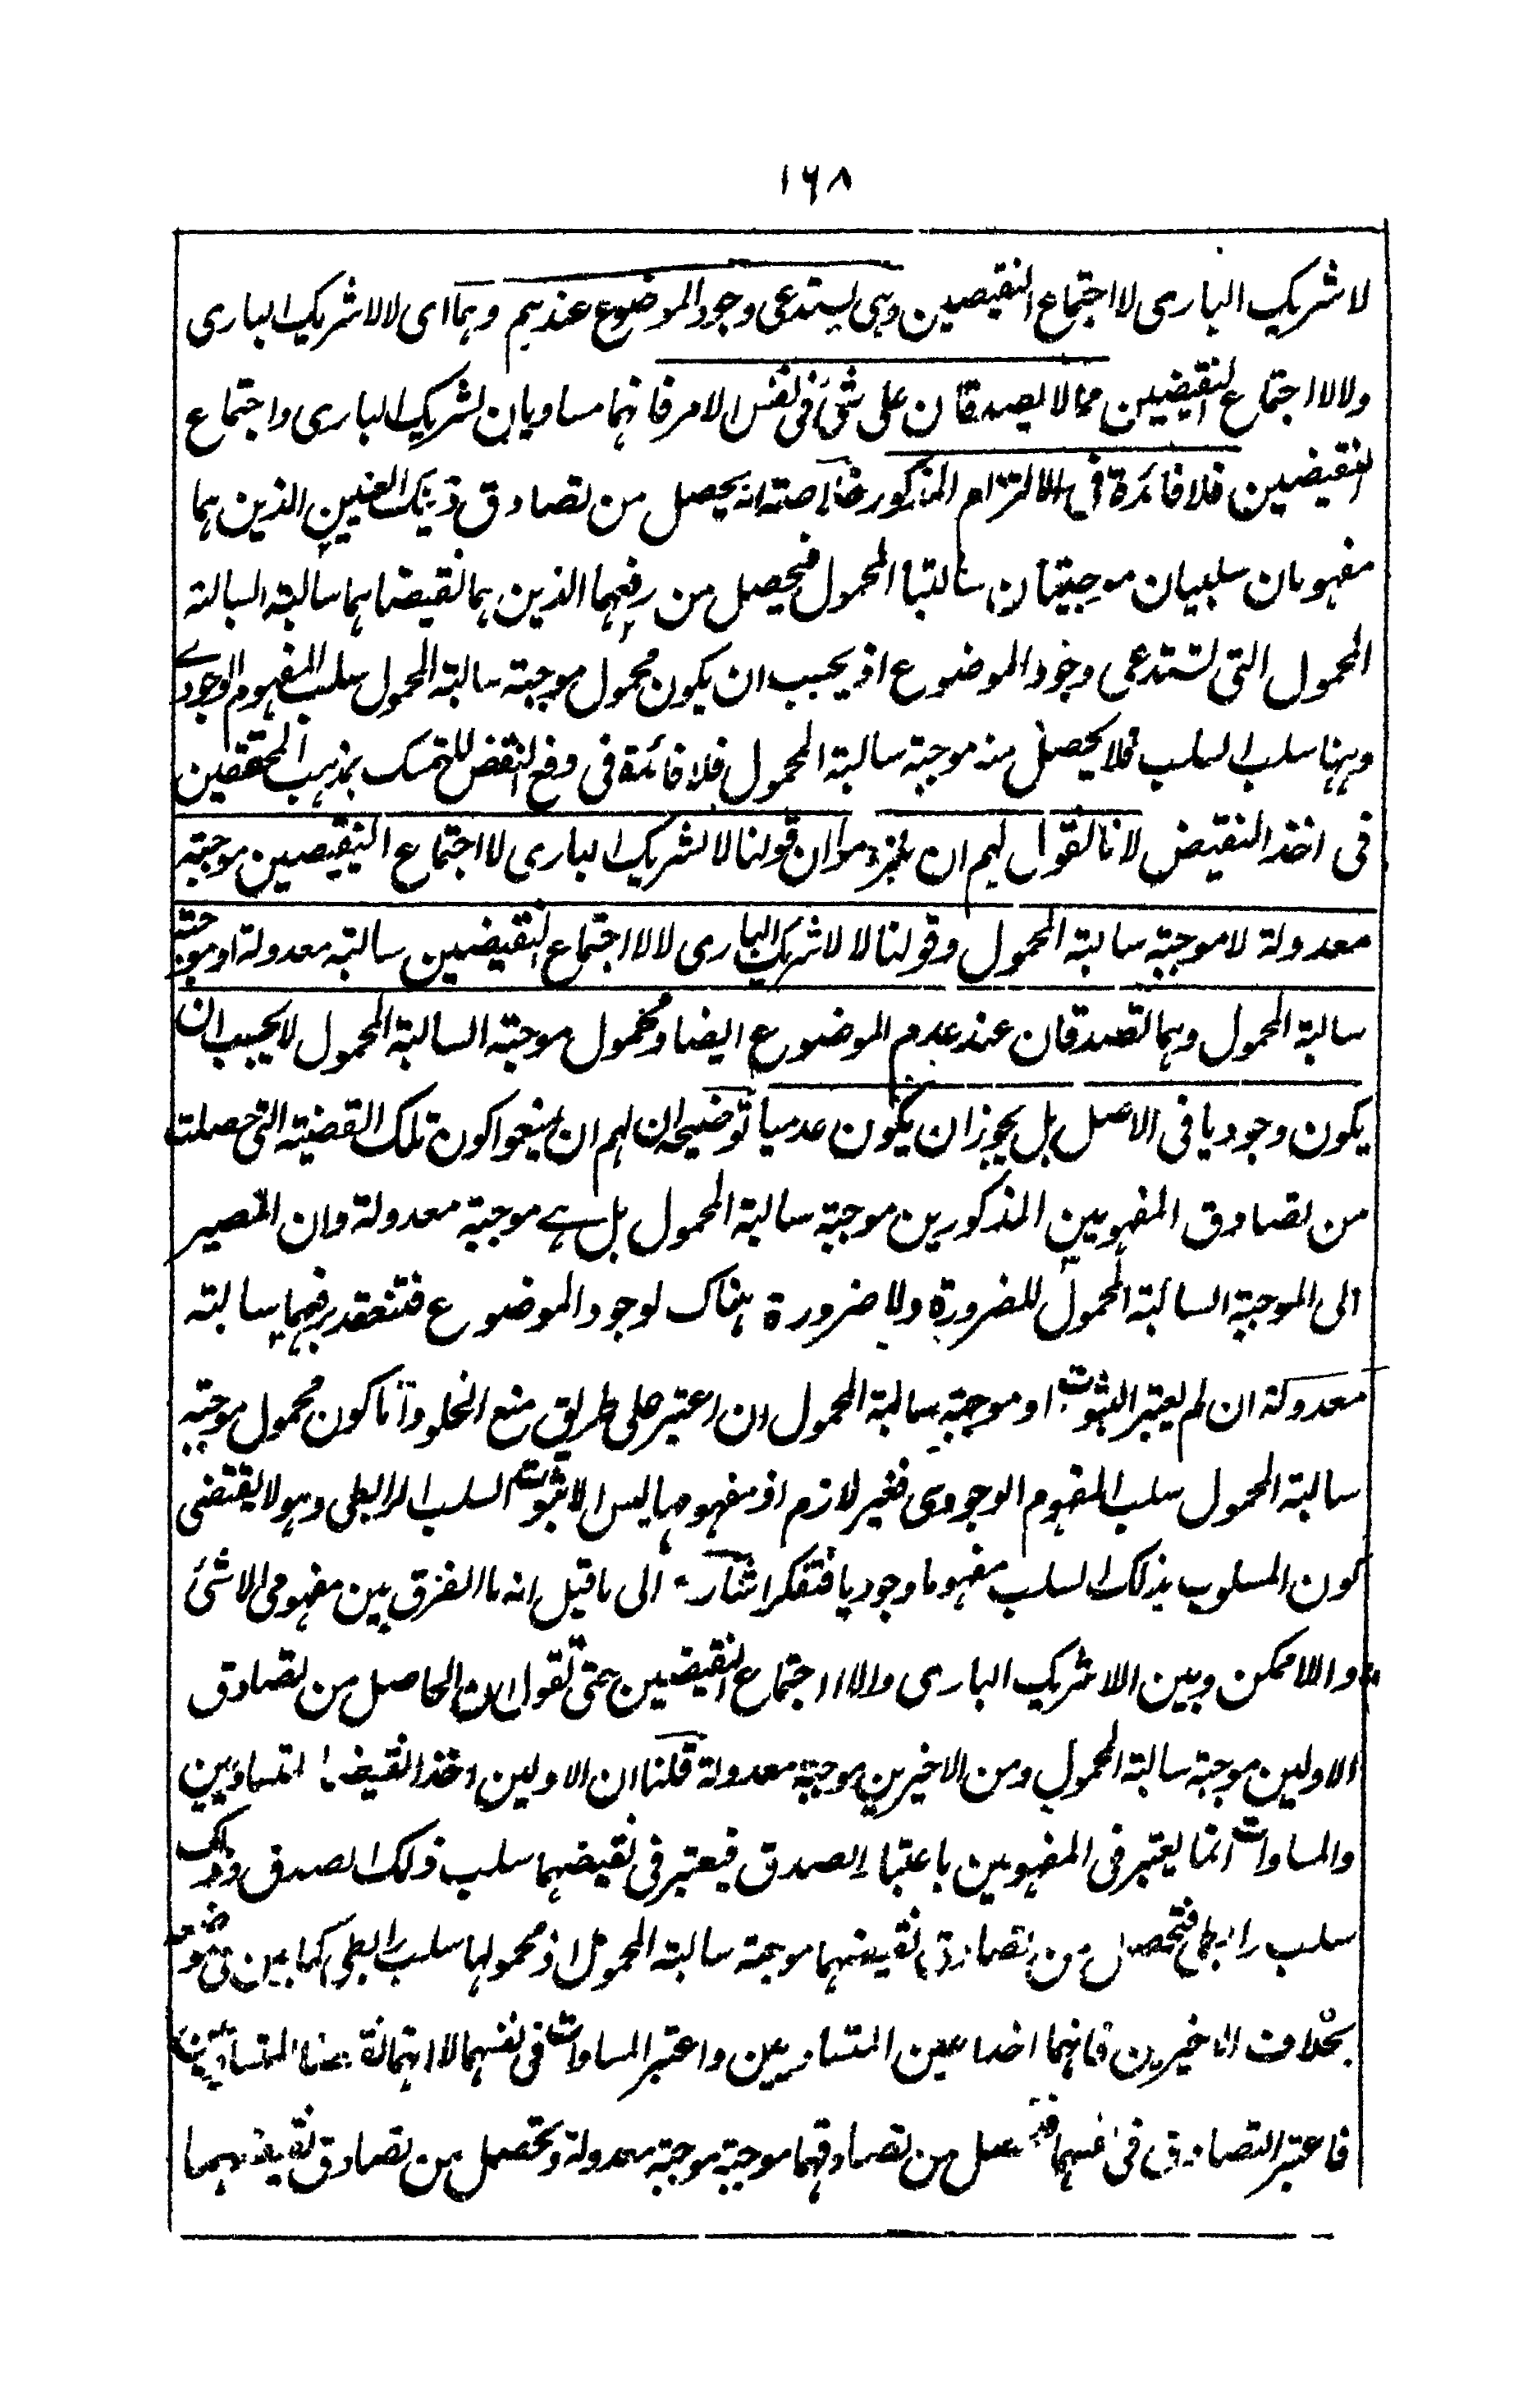 ۱۶۸
لا شريك البارى لا اجتماع النقيضين وهى يستدعى وجود الموضوع عندهم وهما اى لا لا شريك البارى
ولا لا اجتماع النقيضين مما لا يصدقان على شئ فى نفس الامر فانهما مساويان لشريك البارى واجتماع
النقيضين فلا فائدة فى الالتزام المذكور خلاصته انه يحصل من تصادق ذينك العينين الذين هما
مفهومان سلبيان موجبتان سالبتا المحمول فيحصل من رفعهما الذين هما نقيضاهما سالبة السالبة
المحمول التى تستدعى وجود الموضوع اذ يجب ان يكون محمول موجبة سالبة المحمول سلب المفهوم الوجودے
وههنا سلب السلب فلا يحصل منه موجبة سالبة المحمول فلا فائدة فى دفع النقض للتمسك بمذهب المحققين
فى اخذ النقيض لانا نقول لهم ان يلتزموا ان قولنا لا شريك البارى لا اجتماع النقيضين موجبة
معدولة لا موجبة سالبة المحمول وقولنا لا لا شريك البارى لا لا اجتماع النقيضين سالبة معدولة او موجبة
سالبة المحمول وهما تصدقان عند عدم الموضوع ايضا ومحمول موجبة السالبة المحمول لا يجب ان
يكون وجوديا فى الاصل بل يجوز ان يكون عدميا توضيحه ان لهم ان يمنعوا كون تلك القضية التى حصلت
من تصادق المفهومين المذكورين موجبة سالبة المحمول بل هے موجبة معدولة وان المصير
الى الموجبة السالبة المحمول للضرورة ولا ضرورة هناك لوجود الموضوع فتنعقد برفعهما سالبة
معدولة ان لم يعتبر الثبوت او موجبة سالبة المحمول ان اعتبر على طريق منع الخلو واما كون محمول موجبة
سالبة المحمول سلب المفهوم الوجودى فغير لازم اذ مفهومها ليس الا ثبوت السلب الرابطى وهو لا يقتضى
كون المسلوب بذلك السلب مفهوما وجوديا فتفكر اشارة الى ما قيل انه ما الفرق بين مفهومى الاشئ
والا ممكن وبين اللا شريك البارى والا اجتماع النقيضين حتى نقول ان الحاصل من تصادق
الاولين موجبة سالبة المحمول ومن الاخيرين موجبة معدولة قلنا ان الاولين اخذا نقيضا المتساويين
والمساوات انما يعتبر فى المفهومين باعتبار الصدق فيعتبر فى نقيضهما سلب ذلك الصدق وذلك
سلب رابطى فتحصل من تصادق نقيضهما موجبة سالبة المحمول اذ محمولها سلب رابطى كما بين فى موضعه
بخلاف الاخيرين فانهما اخذا عين المتساويين واعتبر المساوات فى نفسهما لا انهما نقيضا المتساويين
فاعتبر التصادق فى نفسهما فتحصل من تصادقهما موجبة موجبة معدولة وتحصل من تصادق نقيضهما